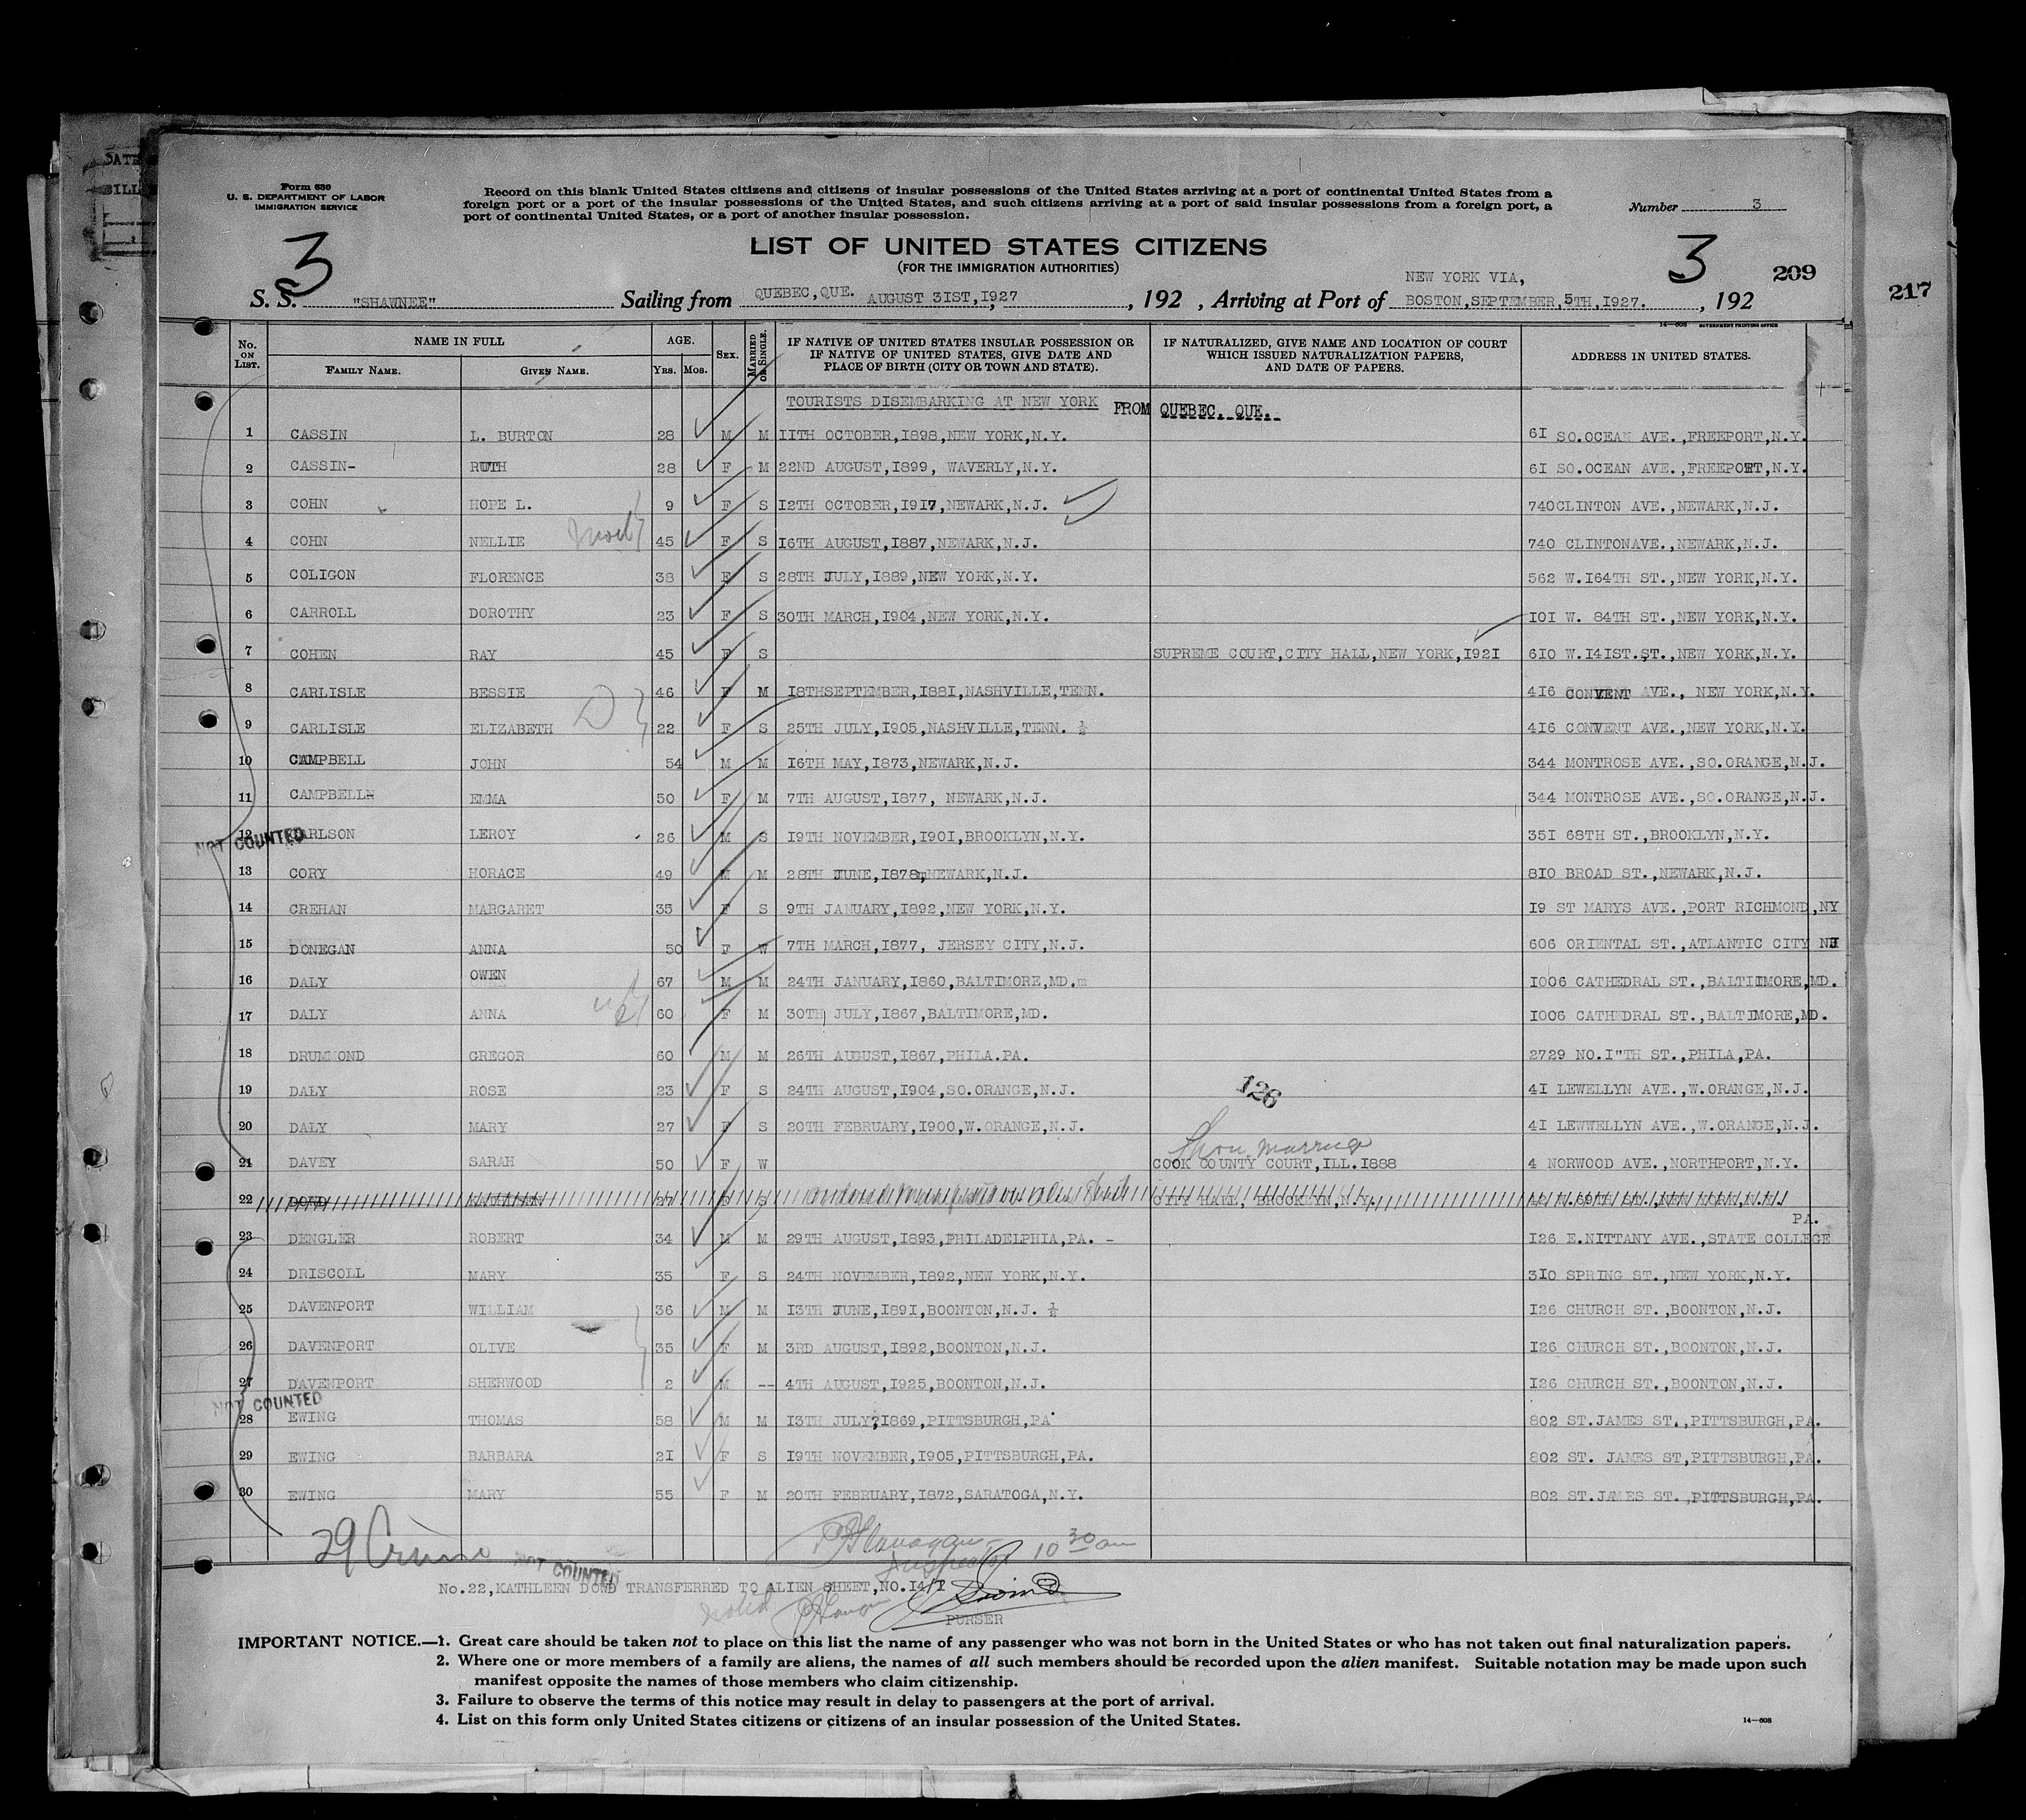 DATE
BILL
Form 630
U. S. DEPARTMENT OF LABOR
IMMIGRATION SERVICE
Record on this blank United States citizens and citizens of insular possessions of the United States arriving at a port of continental United States from a
foreign port or a port of the insular possessions of the United States, and such citizens arriving at a port of said insular possessions from a foreign port, a
port of continental United States, or a port of another insular possession.
Number 3
LIST OF UNITED STATES CITIZENS
(FOR THE IMMIGRATION AUTHORITIES)
3 3 209 217
NEW YORK VIA,
S. S. "SHAWNEE" Sailing from QUEBEC,QUE. AUGUST 31ST,1927, 192 , Arriving at Port of BOSTON,SEPTEMBER,5TH,1927. , 192
14—608 GOVERNMENT PRINTING OFFICE
No. ON LIST. NAME IN FULL FAMILY NAME. GIVEN NAME. AGE. YRS. MOS. SEX. MARRIED OR SINGLE. IF NATIVE OF UNITED STATES INSULAR POSSESSION OR IF NATIVE OF UNITED STATES, GIVE DATE AND PLACE OF BIRTH (CITY OR TOWN AND STATE). IF NATURALIZED, GIVE NAME AND LOCATION OF COURT WHICH ISSUED NATURALIZATION PAPERS, AND DATE OF PAPERS. ADDRESS IN UNITED STATES.
TOURISTS DISEMBARKING AT NEW YORK FROM QUEBEC. QUE.
1 CASSIN L. BURTON 28 M M 11TH OCTOBER,1898,NEW YORK,N.Y. 61 SO.OCEAN AVE.,FREEPORT,N.Y.
2 CASSIN- RUTH 28 F M 22ND AUGUST,1899, WAVERLY,N.Y. 61 SO.OCEAN AVE.,FREEPORT,N.Y.
3 COHN HOPE L. 9 F S 12TH OCTOBER,1917,NEWARK,N.J. 740CLINTON AVE.,NEWARK,N.J.
4 COHN NELLIE 45 F S 16TH AUGUST,1887,NEWARK,N.J. 740 CLINTONAVE.,NEWARK,N.J.
5 COLIGON FLORENCE 38 F S 28TH JULY,1889,NEW YORK,N.Y. 562 W.164TH ST.,NEW YORK,N.Y.
6 CARROLL DOROTHY 23 F S 30TH MARCH,1904,NEW YORK,N.Y. 101 W. 84TH ST.,NEW YORK,N.Y.
7 COHEN RAY 45 F S SUPREME COURT,CITY HALL,NEW YORK,1921 610 W.141ST.ST.,NEW YORK,N.Y.
8 CARLISLE BESSIE 46 F M 18THSEPTEMBER,1881,NASHVILLE,TENN. 416 CONVENT AVE., NEW YORK,N.Y.
9 CARLISLE ELIZABETH 22 F S 25TH JULY,1905,NASHVILLE,TENN. ½ 416 CONVENT AVE.,NEW YORK,N.Y.
10 CAMPBELL JOHN 54 M M 16TH MAY,1873,NEWARK,N.J. 344 MONTROSE AVE.,SO.ORANGE,N.J.
11 CAMPBELL EMMA 50 F M 7TH AUGUST,1877, NEWARK,N.J. 344 MONTROSE AVE.,SO.ORANGE,N.J.
NOT COUNTED
12 CARLSON LEROY 26 M S 19TH NOVEMBER,1901,BROOKLYN,N.Y. 351 68TH ST.,BROOKLYN,N.Y.
13 CORY HORACE 49 M M 28TH JUNE,1878,NEWARK,N.J. 810 BROAD ST.,NEWARK,N.J.
14 CREHAN MARGARET 35 F S 9TH JANUARY,1892,NEW YORK,N.Y. 19 ST MARYS AVE.,PORT RICHMOND,NY
15 DONEGAN ANNA 50 F W 7TH MARCH,1877, JERSEY CITY,N.J. 606 ORIENTAL ST.,ATLANTIC CITY NJ
16 DALY OWEN 67 M M 24TH JANUARY,1860,BALTIMORE,MD.m 1006 CATHEDRAL ST.,BALTIIMORE,MD.
17 DALY ANNA 60 F M 30TH JULY,1867,BALTIMORE,MD. 1006 CATHEDRAL ST.,BALTIMORE,MD.
18 DRUMMOND GREGOR 60 M M 26TH AUGUST,1867,PHILA.PA. 2729 NO.1"TH ST.,PHILA,PA.
19 DALY ROSE 23 F S 24TH AUGUST,1904,SO.ORANGE,N.J. 41 LEWELLYN AVE.,W.ORANGE,N.J.
126
20 DALY MARY 27 F S 20TH FEBRUARY,1900,W.ORANGE,N.J. 41 LEWWELLYN AVE.,W.ORANGE,N.J.
Thru marriage
21 DAVEY SARAH 50 F W COOK COUNTY COURT,ILL.1888 4 NORWOOD AVE.,NORTHPORT,N.Y.
22 DOWD KATHLEEN 27 F S CITY HALL, BROOKLYN,N.Y.
PA.
23 DENGLER ROBERT 34 M M 29TH AUGUST,1893,PHILADELPHIA,PA. - 126 E.NITTANY AVE.,STATE COLLEGE
24 DRISCOLL MARY 35 F S 24TH NOVEMBER,1892,NEW YORK,N.Y. 310 SPRING ST.,NEW YORK,N.Y.
25 DAVENPORT WILLIAM 36 M M 13TH JUNE,1891,BOONTON,N.J. ½ 126 CHURCH ST.,BOONTON,N.J.
26 DAVENPORT OLIVE 35 F M 3RD AUGUST,1892,BOONTON,N.J. 126 CHURCH ST.,BOONTON,N.J.
27 DAVENPORT SHERWOOD 2 M -- 4TH AUGUST,1925,BOONTON,N.J. 126 CHURCH ST.,BOONTON,N.J.
NOT COUNTED
28 EWING THOMAS 58 M M 13TH JULY,1869,PITTSBURGH,PA. 802 ST.JAMES ST.,PITTSBURGH,PA.
29 EWING BARBARA 21 F S 19TH NOVEMBER,1905,PITTSBURGH,PA. 802 ST. JAMES ST,PITTSBURGH,PA.
30 EWING MARY 55 F M 20TH FEBRUARY,1872,SARATOGA,N.Y. 802 ST.JAMES ST.,PITTSBURGH,PA.
29 Flanagan
Inspector 10 30 am
NOT COUNTED
No.22,KATHLEEN DOWD TRANSFERRED TO ALIEN SHEET,NO.14/1
PURSER
IMPORTANT NOTICE.—1. Great care should be taken not to place on this list the name of any passenger who was not born in the United States or who has not taken out final naturalization papers.
2. Where one or more members of a family are aliens, the names of all such members should be recorded upon the alien manifest. Suitable notation may be made upon such
manifest opposite the names of those members who claim citizenship.
3. Failure to observe the terms of this notice may result in delay to passengers at the port of arrival.
4. List on this form only United States citizens or citizens of an insular possession of the United States.
14—608